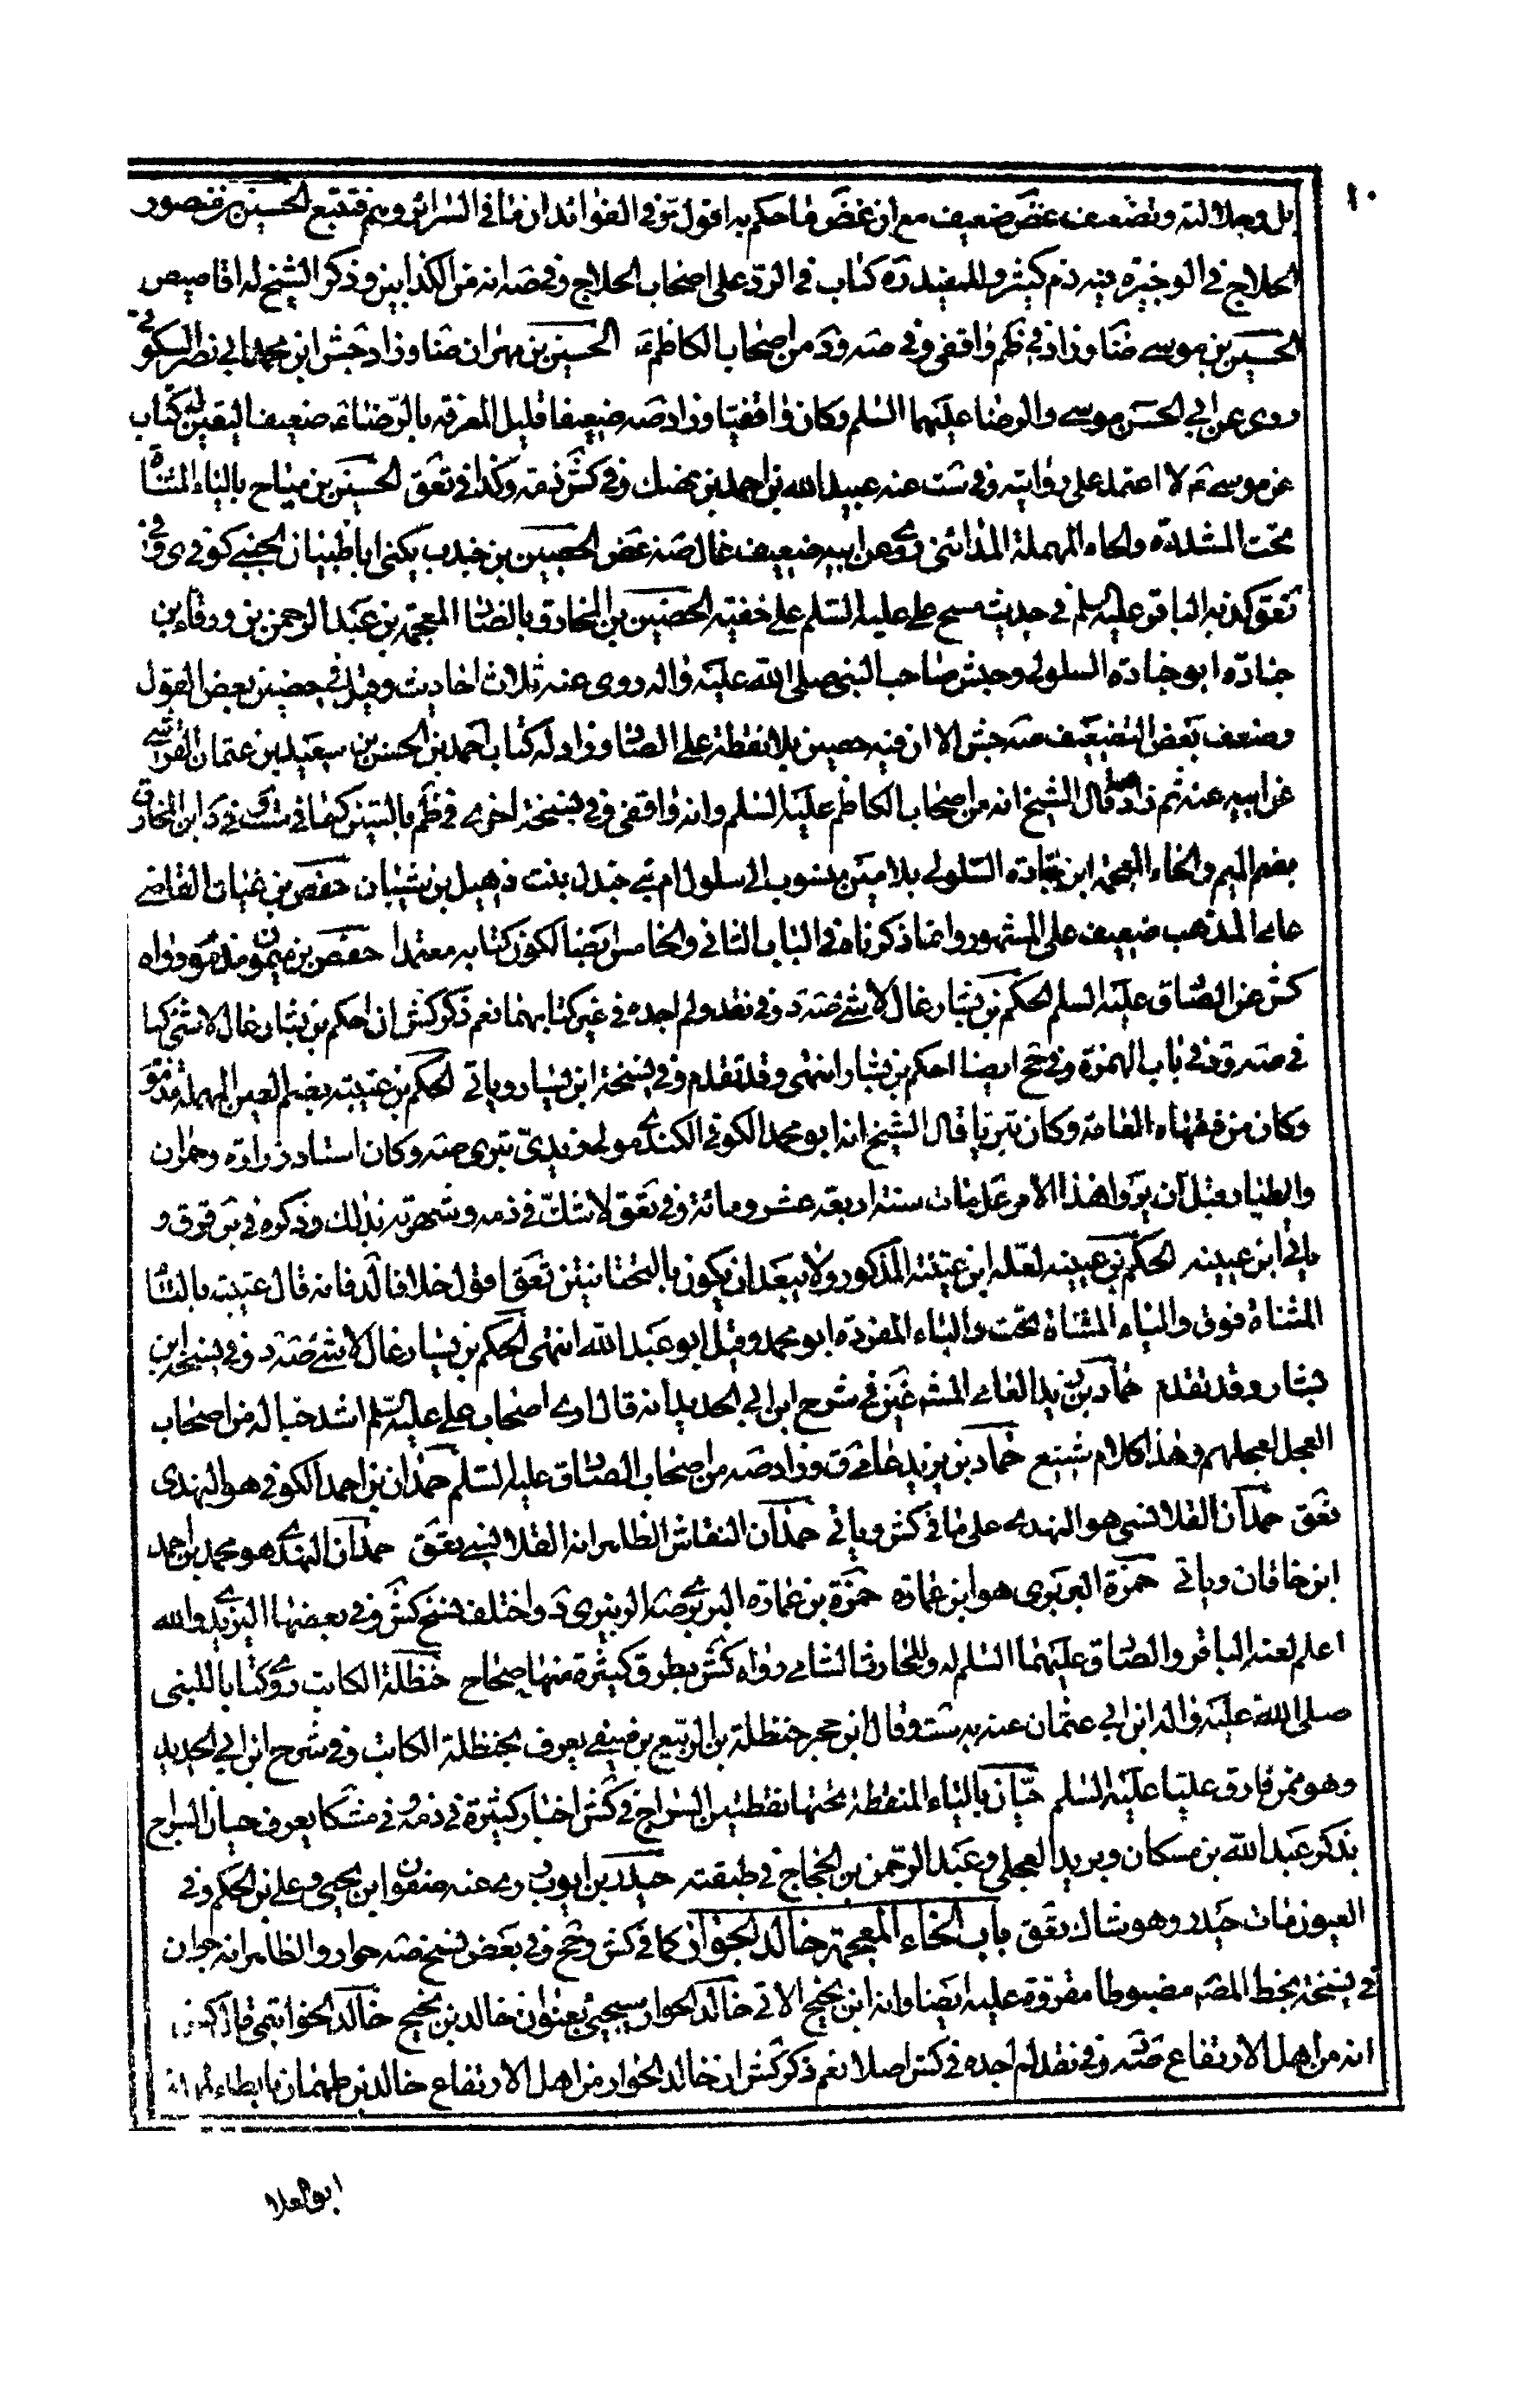 ١٠
بل وجلالته وتضعيف غض ضعيف مع ان غض ما حكم به اقول في الفوائد ان ما في السرائر وهم فتتبع الحسين بن منصور
الحلاج في الوجيزة فيه ذم كثير وللمفيد ره كتاب في الرد على اصحاب الحلاج وفي صه انه من الكذابين وذكر الشيخ له اقاصيص
الحسين بن موسى ضا وزاد في ظم واقفى وفي صه ود من اصحاب الكاظم ع الحسين بن مهران ضا وزاد جش ابن محمد ابى نصر السكونى
روى عن ابى الحسن موسى والرضا عليهما السلم وكان واقفيا وزاد صه ضعيفا قليل المعرفة بالرضا ع ضعيف اليقين له كتاب
عن موسى ع لا اعتمد على روايته وفي ست عنه عبيد الله بن احمد بن نهيك وفي كش ذمه وكذا في تعق الحسين بن مياح بالياء المثناة
تحت المشددة والحاء المهملة المدائنى روى عن ابيه ضعيف غال صه غض الحصين بن جندب يكنى ابا ظبيان الجنبى كوفى ى وفي
تعق كذبه الباقر عليه السلم في حديث مسح على عليه السلم على خفيه الحضين بن المخارق بالضاد المعجمة بن عبد الرحمن بن ورقاء بن
جنادة ابو جنادة السلولى وحبش صاحب النبى صلى الله عليه واله روى عنه ثلاث احاديث وقيل في حضين بعض القول
وضعف بعض التضعيف صه جش الا ان فيه حصين بلا نقطة على الصاد وزاد له كتاب احمد بن الحسن بن سعيد بن عثمان القرشى
عن ابيه عنه ثم زاد صه قال الشيخ انه من اصحاب الكاظم عليه السلم وانه واقفى وفي نسخة اخرى في ظم بالسين كما في ست وق وفي د ابن المخارق
بضم الميم والخاء المعجمة ابن جنادة السلولى بلامين منسوب الى سلول ام بنى جندل بنت ذهيل بن شيبان حفص بن غياث القاضى
عامى المذهب ضعيف على المشهور وانما ذكرناه في الباب الثانى والخامس ايضا لكون كتابه معتمدا حفص بن ميمون مذموم رواه
كش عن الصادق عليه السلم الحكم بن بشار غال لا شئ صه د وفي نقد ولم اجده في غير كتابهما نعم ذكر كش ان احكم بن بشار غال لا شئ كما
في صه ود في باب الهمزة وفي جخ ايضا احكم بن بشار انتهى وقد تقدم وفي نسخة ابن يسار وياتى الحكم بن عتيبة بضم العين المهملة مذموم
وكان من فقهاء العامة وكان بتريا قال الشيخ انه ابو محمد الكوفى الكندى مولى زيدى بترى صه وكان استاد زرارة وحمران
والطيار قبل ان يروا هذا الامر على مات سنة اربعة عشر ومائة وفي تعق لا شك في ذمه وشهرته بذلك وذكره في بر قوق و
ياتى ابن عيينه الحكم بن عيينه لعله ابن عتيبة المذكور ولا يبعد ان يكون بالتحتانيتين تعق اقول خلافا لد فانه قال عتيبة بالتاء
المثناة فوق والياء المثناة تحت والباء المفردة ابو محمد وقيل ابو عبد الله انتهى الحكم بن يسار غال لا شئ صه د وفي نسخة ابن
بشار وقد تقدم حماد بن زيد العامى المشه غير في شرح ابن ابى الحديد انه قال ارى اصحاب على عليه السلم اشد حبا له من اصحاب
العجل لعجلهم وهذا كلام شنيع حماد بن يزيد عامى ق وزاد صه من اصحاب الصادق عليه السلم حمدان بن احمد الكوفى هو النهدى
تعق حمدان القلانسى هو النهدى على ما في كش وياتى حمدان النقاش الظاهر انه القلانسى تعق حمدان النهدى هو محمد بن احمد
ابن خاقان وياتى حمزة البربرى هو ابن عمارة حمزة بن عمارة البربرى صه الزبيرى د واختلف نسخ كش وفي بعضها اليزيدى والله
اعلم لعنه الباقر والصادق عليهما السلم له وللحارث الشامى رواه كش بطرق كثيرة منها صحاح حنظلة الكاتب روى كتابا للنبى
صلى الله عليه واله ابن ابى عثمان عنه به ست وقال ابن حجر حنظلة بن الربيع بن صيفى يعرف بحنظلة الكاتب وفي شرح ابن ابى الحديد
وهو ممن فارق عليا عليه السلم حيان بالياء المنقطة تحتها نقطتين السراج في كش اخبار كثيرة في ذمه وفي مشكا يعرف حيان السراج
بذكر عبد الله بن مسكان وبريد العجلى وعبد الرحمن بن الحجاج في طبقته حيدر بن ايوب روى عنه صفوان ابن يحيى وعلى بن الحكم وفي
العيون مات حيدر وهو شاك تعق باب الخاء المعجمة خالد الجوان كما في كش وجخ وفي بعض نسخ صه حوار والظاهر انه جوان
في نسخة بخط المصه مضبوطا مقروة عليه ايضا وانه ابن نجيح الاتى خالد الحوار سيجيئ بعنوان خالد بن نجيح خالد الخواتيمى قال كش
انه من اهل الارتفاع صه وفي نقد لم اجده في كش اصلا نعم ذكر كش ان خالد الحوار من اهل الارتفاع خالد بن طهمان بالطاء المهملة
ابو العلا